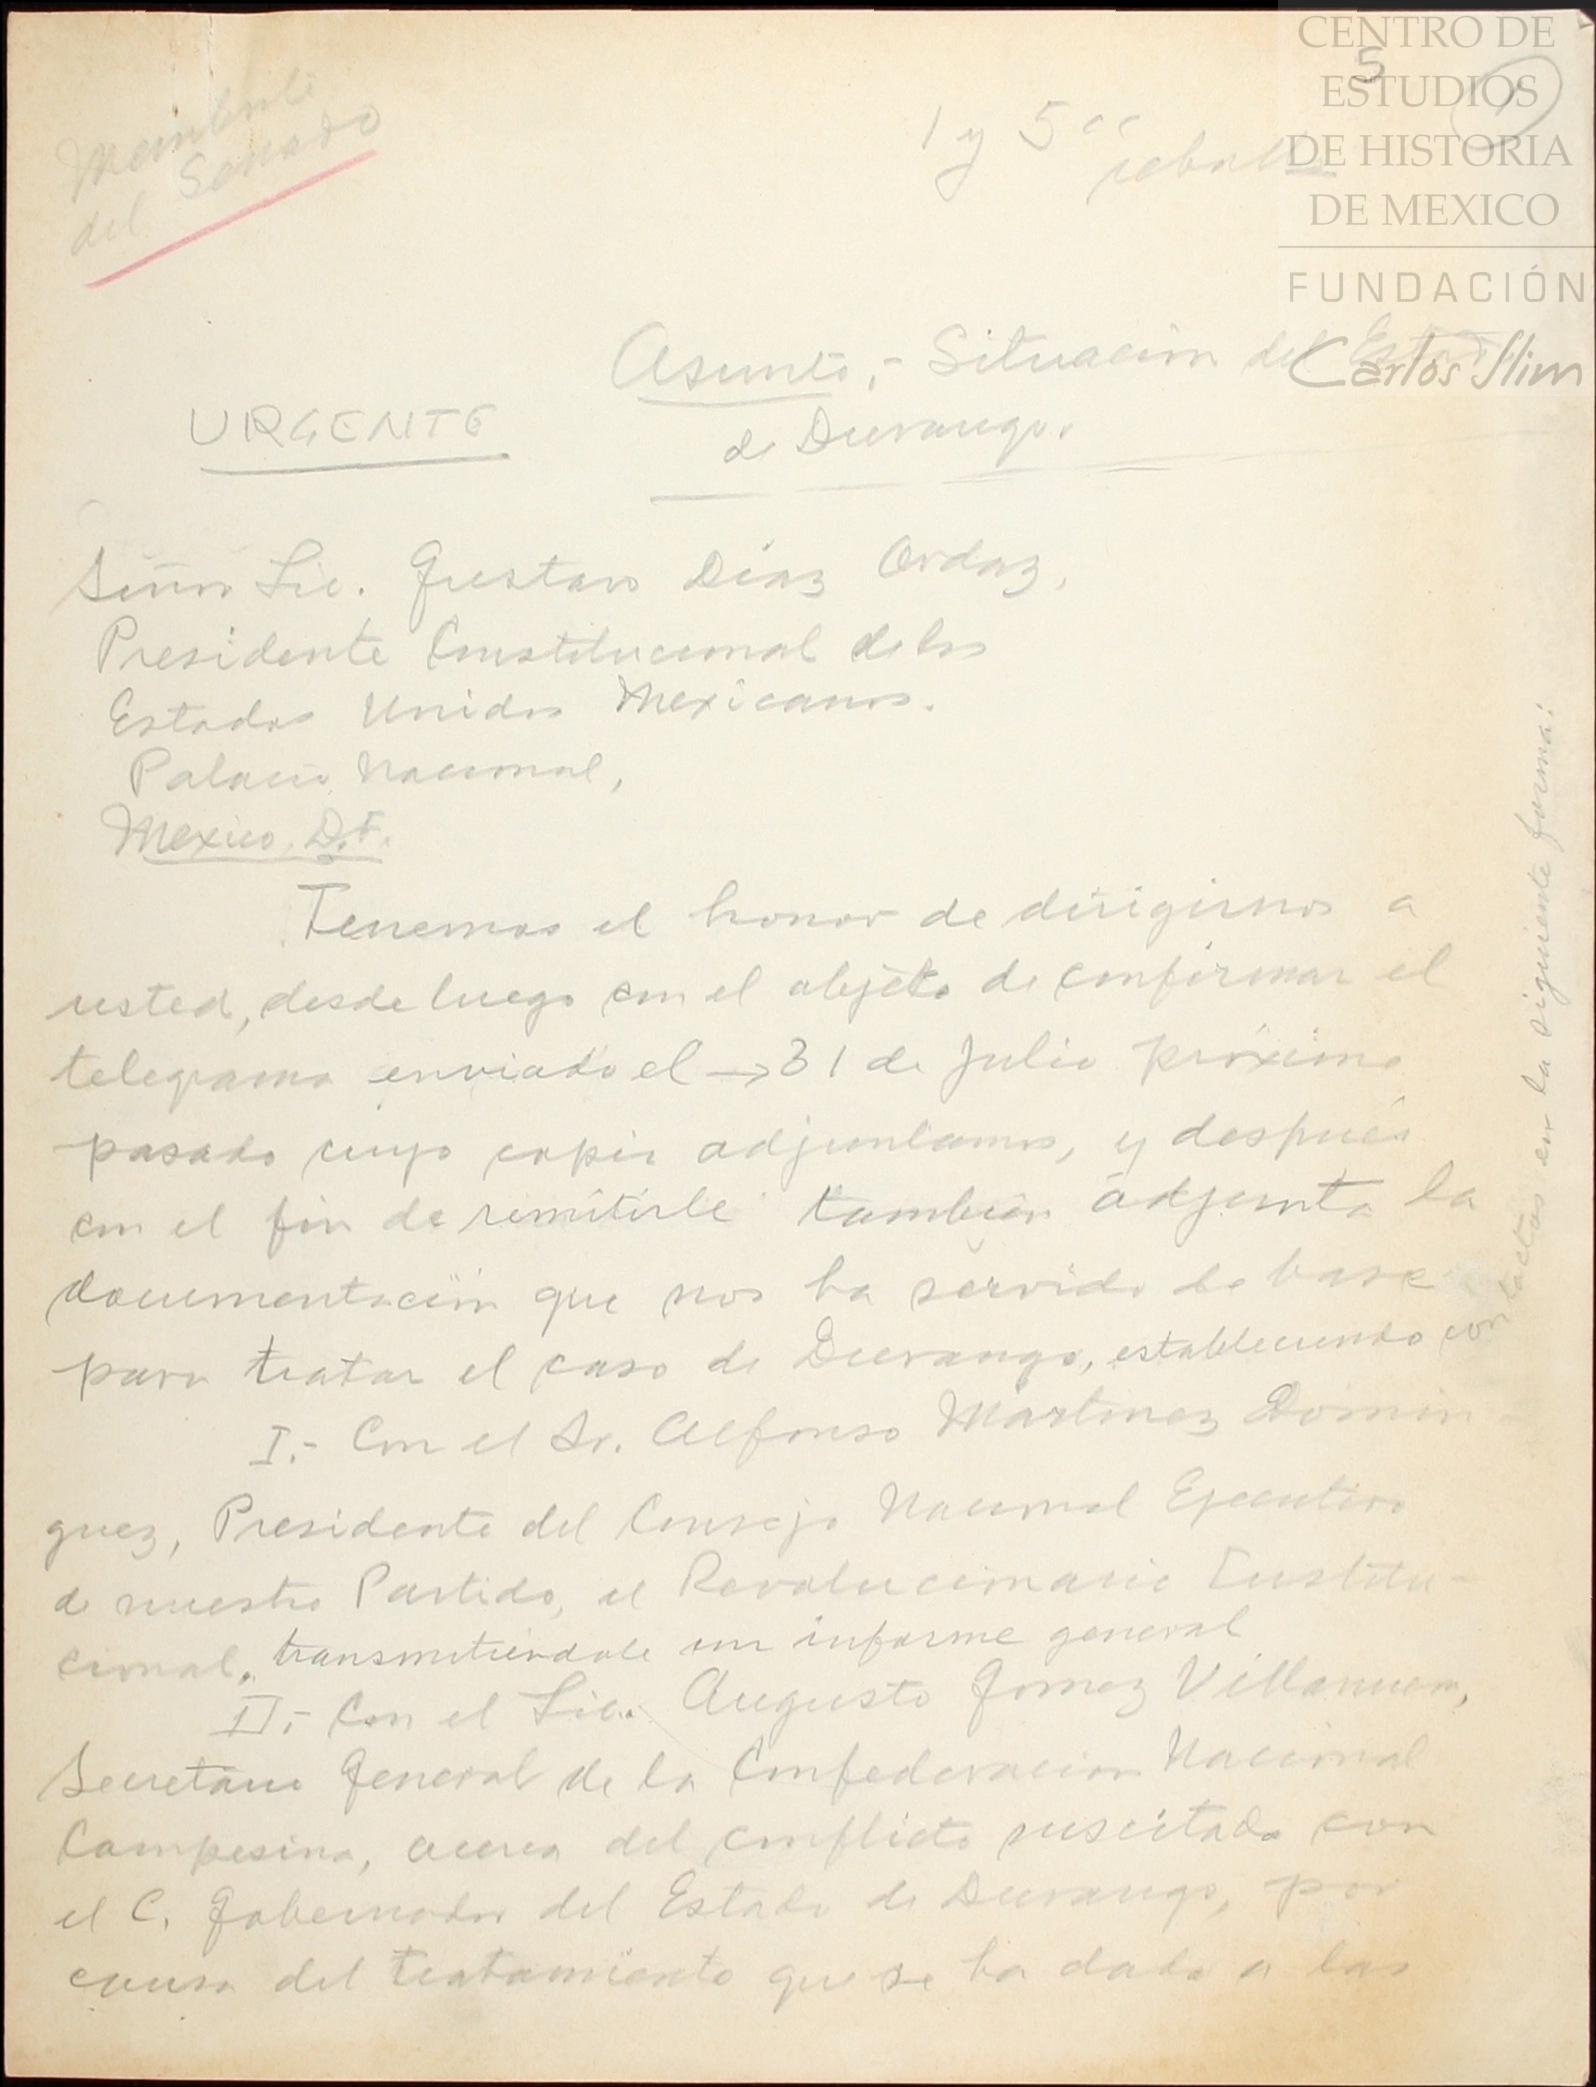 CENTRO DE
ESTUDIOS
DE HISTORIA
DE MEXICO
FUNDACIÓN
Carlos Slim
5
1
Membrete
del Senado
1 y 5 cc
Asunto.- Situación del Estado
de Durango.
URGENTE
Señor Lic. Gustavo Díaz Ordaz,
Presidente Constitucional de los
Estados Unidos Mexicanos.
Palacio Nacional,
Mexico, D.F.
Tenemos el honor de dirigirnos a
usted, desde luego con el objeto de confirmar el
telegrama enviado el → 31 de Julio próximo
pasado cuya copia adjuntamos, y después
con el fin de remitirle también adjunta la
documentación que nos ha servido de base
para tratar el caso de Durango, estableciendo contactos en la siguiente forma:
I.- Con el Sr. Alfonso Martinez Domin-
guez, Presidente del Consejo Nacional Ejecutivo
de nuestro Partido, el Revolucionario Institu-
cional, transmitiéndole un informe general
II.- Con el Lic. Augusto Gomez Villanueva,
Secretario General de la Confederacion Nacional
Campesina, acerca del conflicto suscitado con
el C. Gobernador del Estado de Durango, por
causa del tratamiento que se ha dado a las